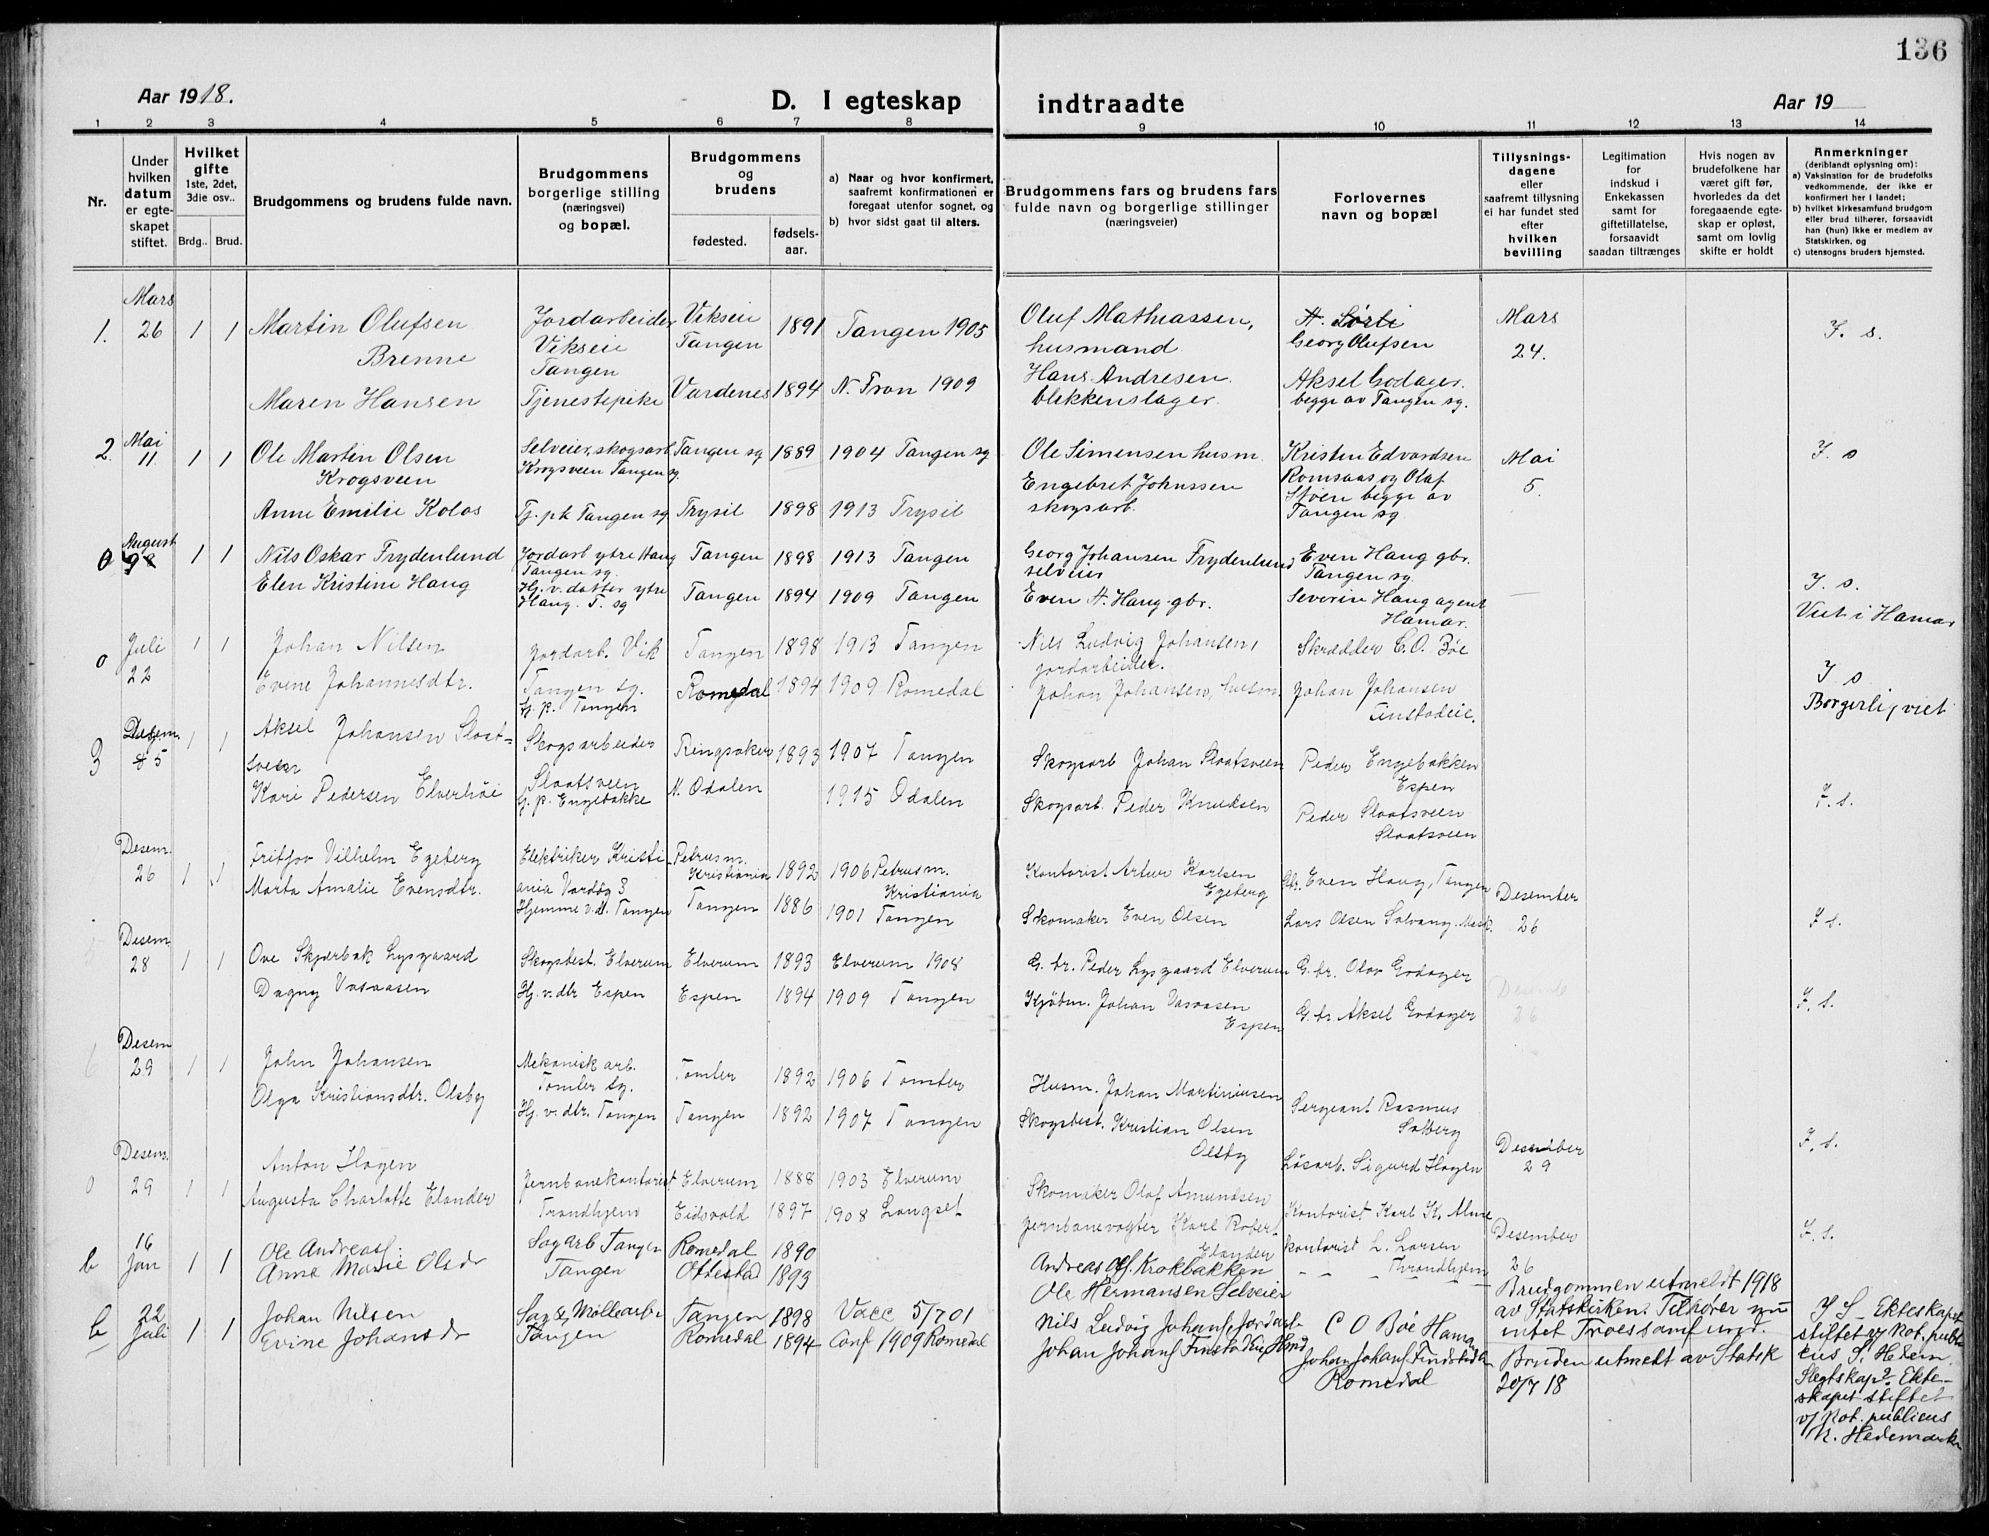 136
Aar 1918.
D. I egteskap
indtraadte
Aar 19
1 2 3 4 5 6 7 8 9 10 11 12 13 14
Nr.
Under hvilken datum er egte-skapet stiftet.
Hvilket gifte
1ste, 2det, 3die osv..
Brdg.. Brud.
Brudgommens og brudens fulde navn.
Brudgommens borgerlige stilling (næringsvei) og bopæl.
Brudgommens og brudens
fødested. fødsels-aar.
a) Naar og hvor konfirmert, saafremt konfirmationen er foregaat utenfor sognet, og
b) hvor sidst gaat til alters.
Brudgommens fars og brudens fars fulde navn og borgerlige stillinger (næringsveier)
Forlovernes navn og bopæl
Tillysnings-dagene eller saafremt tillysning ei har fundet sted efter hvilken bevilling
Legitimation for indskud i Enkekassen samt for giftetillatelse, forsaavidt saadan tiltrænges
Hvis nogen av brudefolkene har været gift før, hvorledes da det foregaaende egte-skap er opløst, samt om lovlig skifte er holdt
Anmerkninger (deriblandt oplysning om):
a) Vaksination for de brudefolks vedkommende, der ikke er konfirmert her i landet;
b) hvilket kirkesamfund brudgom eller brud tilhører, forsaavidt han (hun) ikke er medlem av Statskirken, og
c) utensogns bruders hjemsted.
1. Mars 26 1 1 Martin Olufsen Brenne Jordarbeider Vikseie Tangen Vikseie Tangen 1891 Tangen 1905 Oluf Mathiassen, husmand Georg Olufsen Mars 24. J. s.
Maren Hansen Tjenestepike Vardenes 1894 N. Fron 1909 Hans Andresen blikkenslager Aksel Godager. begge av Tangen sg.
2. Mai 11 1 1 Ole Martin Olsen Krogsveen Selveier, skogsarb. Krogsveen Tangen sg. Tangen sg 1889 1904 Tangen sg Ole Simensen husm. Kristen Edvardsen Romsaas og Olaf Støen begge av Tangen sg. Mai 5. J. s
Anne Emilie Kolos Tj. pk Tangen sg. Trysil 1898 1913 Trysil Engebret Johnssen skogsarb.
0 August 1 1 Nils Oskar Frydenlund Jordarb ytre Haug Tangen sg. Tangen 1898 1913 Tangen Georg Johansen Frydenlund selveier Even Haug gbr. Tangen sg. J. s.
Elen Kristine Haug Hj. v. datter ytre Haug. T. sg Tangen 1894 1909 Tangen Even A. Haug gbr. Severin Haug agent Hamar. Viet i Hamar
0 Juli 22 1 1 Johan Nilsen Jordarb. Vik Tangen sg. Tangen 1898 1913 Tangen Nils Ludvig Johansen, jordarbeider. Skrædder C. O. Bøe J. s
Evine Johannesdtr. Tj. p. Tangen Romedal 1894 1909 Romedal Johan Johansen, husm. Johan Johansen Finstadeie. Borgerlig viet
3 Desem. 5 1 1 Aksel Johansen Slaat-sveen Skogsarbeider Slaatsveen Ringsaker 1893 1907 Tangen Skogsarb Johan Slaatsveen Peder Engebakken Espen J. s.
Kari Pedersen Elverhöi Tj. p. Engebakke N. Odalen 1915 Odalen Skogsarb. Peder Knudsen Peder Slaatsveen Slaatsveen
Desem. 26 1 1 Fritjov Vilhelm Egeberg Elektriker Kristiania Vardøg 3 Petrusm. Kristiania 1892 1906 Petrusm. Kristiania Kontorist Artur Karlsen Egeberg Gbr. Even Haug, Tangen Desember 26 J. s.
Marta Amalie Evensdtr. Hjemme v. d. Tangen Tangen 1886 1901 Tangen Skomaker Even Olsen Lars Olsen Solvang
Desem. 28 1 1 Ove Skjærbak Lysgaard Skogsbest. Elverum Elverum 1893 Elverum 1908 G. br. Peder Lysgaard Elverum G. br. Olav Godager 26 J. s.
Dagny Vasaasen Hj. v. dtr Espen Espen 1894 1909 Tangen Kjøbm. Johan Vasaasen Espen G. br. Aksel Godager
6 Desem 29 1 1 John Johansen Mekanisk arb. Tomter sg. Tomter 1892 1906 Tomter Husm. Johan Martiniusen Sergeant Rasmus Solberg J. s.
Olga Kristiansdtr. Olsby Hj. v. dtr. Tangen Tangen 1892 1907 Tangen Skogsbest. Kristian Olsen Olsby Løsarb. Sigurd Hagen Desember 29
0 Desem. 29 1 1 Anton Hagen Jernbanekontorist Trondhjem Elverum 1888 1903 Elverum Skomaker Olaf Amundsen Kontorist Karl K. Alme J. s.
Augusta Charlotte Elander Eidsvold 1897 1908 Langset Jernbanevogter Karl Robert Elander Kontorist L. Larsen Throndhjem Desember 26
b 16 Jan 1 1 Ole Andreasf Sagarb Tangen Romedal 1890 Andreas Olf. Krokbakken
Anne Marie Olsdr Tangen Ottestad 1893 Ole Hermansen Selveier
b 22 Juli 1 1 Johan Nilsen Sag & Møllearb Tangen Tangen 1898 Vacc 5/7 01 Nils Ludvig Johansf Jordarb C O Bøe Hamar
Evine Johansdr Romedal 1894 Conf 1909 Romedal Johan Johansf Finstadeie Johan Johansf Finstadeie Romedal
Brudgommen utmeldt 1918
av Statskirken. Tilhører nu
intet Troessamfund.
Bruden utmelt av Statsk
20/7 18
J S Ekteskapet
stiftet v/ Not. publi-
cus S. Hedem.
Slegtskap? Ekte-
skapet stiftet
v/ Not. publicus
N. Hedemarken